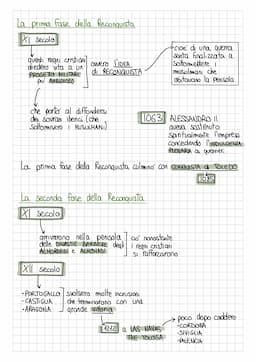 La prima fase della Reconquista
XI secolo
questi regni cristiani
diedero vita a un
PROGETTO MILITARE
più AMBIZIOSO
ovvero l'IDEA
di RECONQUISTA
cioè di una guerra
santa finalizzata a
sottomettere i
musulmani che
abitavano la penisola
che portò al diffondersi
dei sovrani iberici (che
sottomisero i MUSULMANI)
1063
ALESSANDRO II
aveva sostenuto
spiritualmente l'impresa
concedendo l'INDULGENZA
PLENARIA ai guerrieri
La prima fase della Reconquista culminò con CONQUISTA di TOLEDO
1085
La seconda fase della Reconquista
X secolo
arrivarono nella penisola
delle DINASTIE BERBERE degli
ALMORAVIDI e ALMOHADI
ciò nonostante
i regni cristiani
si rafforzarono
XII secolo
-PORTOGALLO
-CASTIGLIA
-ARAGONA
svolsero molte incursioni
che terminarono con una
grande vittoria
1212 a LAS NAVAS
DE TOLOSA
poco dopo caddero
-CORDOBA
-SIVIGLIA
-VALENCIA